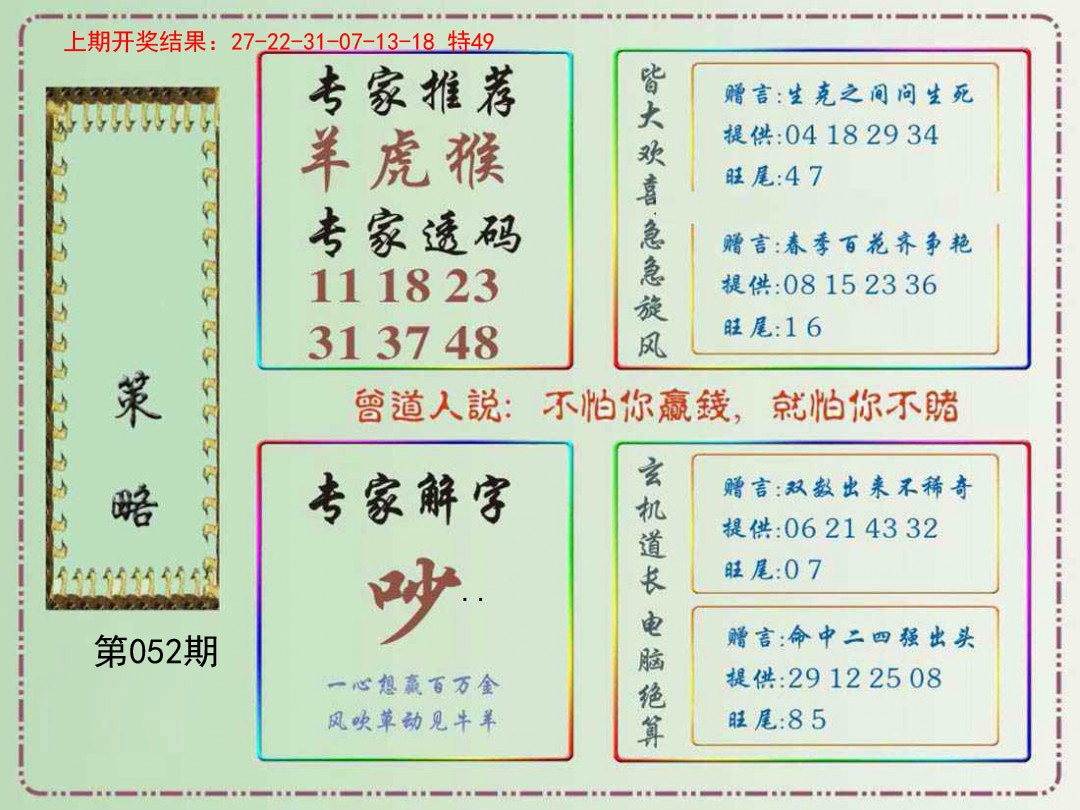 上期开奖结果：27-22-31-07-13-18 特49
策略
第052期
专家推荐
羊虎猴
专家透码
11 18 23
31 37 48
皆大欢喜
赠言:生克之间问生死
提供:04 18 29 34
旺尾:4 7
急急旋风
赠言:春季百花齐争艳
提供:08 15 23 36
旺尾:1 6
曾道人説：不怕你赢錢，就怕你不賭
专家解字
吵
一心想赢百万金
风吹草动见牛羊
玄机道长
赠言:双数出来不稀奇
提供:06 21 43 32
旺尾:0 7
电脑绝算
赠言:命中二四强出头
提供:29 12 25 08
旺尾:8 5